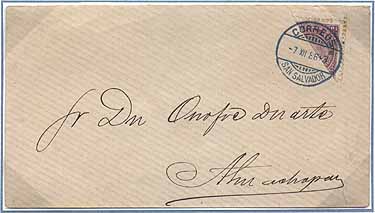 CORREOS
-7 XII 86
SAN SALVADOR
Sr Dn Onofre Duarte
Ahuachapan